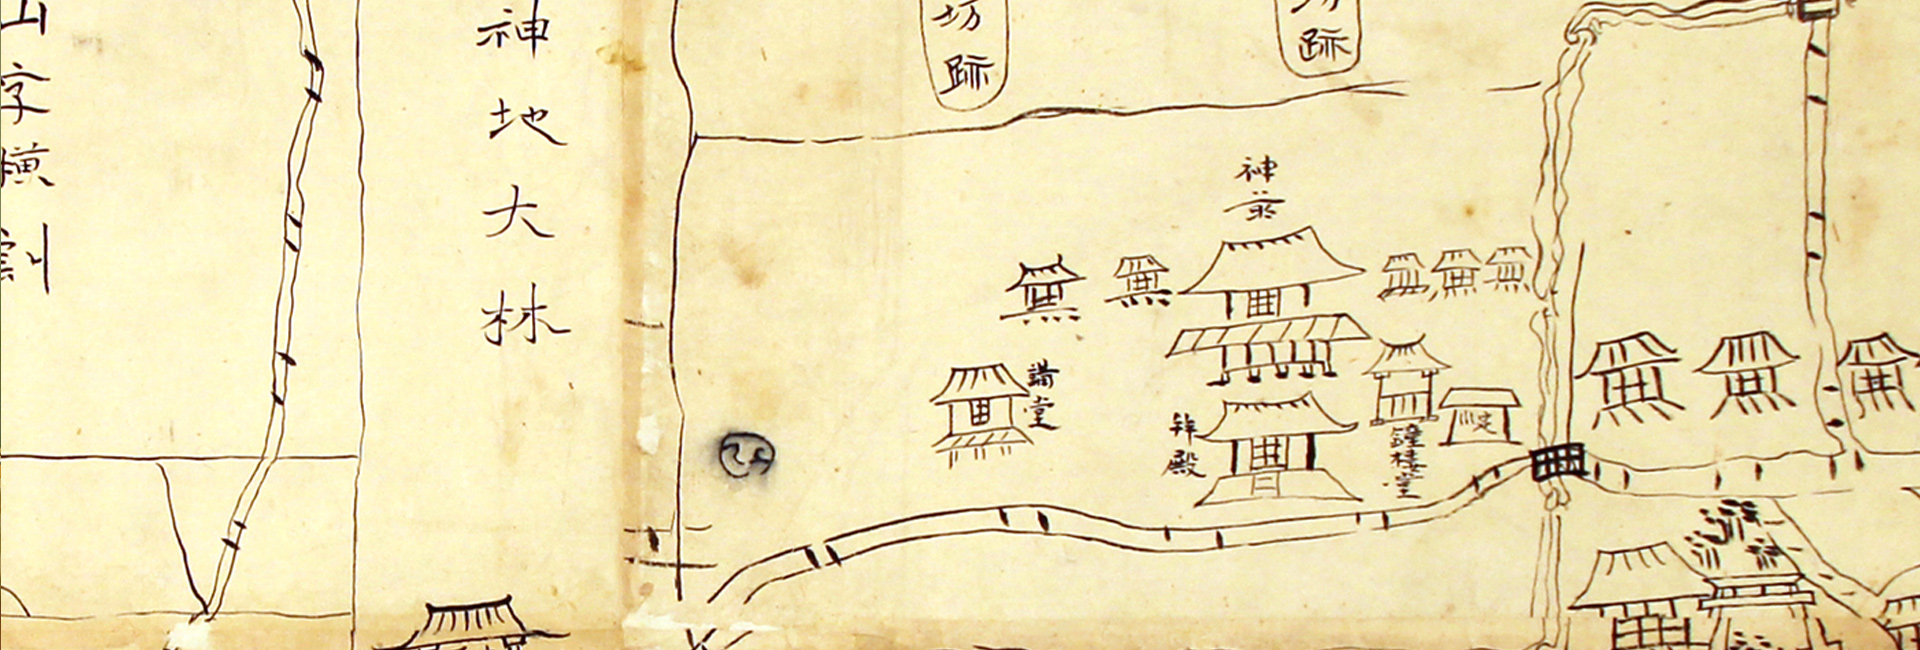 坊跡
坊跡
神前
講堂
拝殿
鐘楼堂
神地大林
山字横割